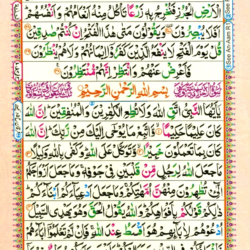 الْاَرْضِ الْجُرُزِ فَنُخْرِجُ بِهٖ زَرْعًا تَاْكُلُ مِنْهُ اَنْعَامُهُمْ وَاَنْفُسُهُمْ
اَفَلَا يُبْصِرُوْنَ وَيَقُوْلُوْنَ مَتٰى هٰذَا الْفَتْحُ اِنْ كُنْتُمْ صٰدِقِيْنَ
قُلْ يَوْمَ الْفَتْحِ لَا يَنْفَعُ الَّذِيْنَ كَفَرُوْٓا اِيْمَانُهُمْ وَلَا هُمْ يُنْظَرُوْنَ
فَاَعْرِضْ عَنْهُمْ وَانْتَظِرْ اِنَّهُمْ مُّنْتَظِرُوْنَ
بِسْمِ اللّٰهِ الرَّحْمٰنِ الرَّحِيْمِ
يٰٓاَيُّهَا النَّبِيُّ اتَّقِ اللّٰهَ وَلَا تُطِعِ الْكٰفِرِيْنَ وَالْمُنٰفِقِيْنَ اِنَّ اللّٰهَ
كَانَ عَلِيْمًا حَكِيْمًا وَّاتَّبِعْ مَا يُوْحٰٓى اِلَيْكَ مِنْ رَّبِّكَ اِنَّ اللّٰهَ
كَانَ بِمَا تَعْمَلُوْنَ خَبِيْرًا وَّتَوَكَّلْ عَلَى اللّٰهِ وَكَفٰى بِاللّٰهِ وَكِيْلًا
مَا جَعَلَ اللّٰهُ لِرَجُلٍ مِّنْ قَلْبَيْنِ فِيْ جَوْفِهٖ وَمَا جَعَلَ اَزْوَاجَكُمُ
الّٰٓـِٔيْ تُظٰهِرُوْنَ مِنْهُنَّ اُمَّهٰتِكُمْ وَمَا جَعَلَ اَدْعِيَآءَكُمْ اَبْنَآءَكُمْ
ذٰلِكُمْ قَوْلُكُمْ بِاَفْوَاهِكُمْ وَاللّٰهُ يَقُوْلُ الْحَقَّ وَهُوَ يَهْدِى السَّبِيْلَ
اُدْعُوْهُمْ لِاٰبَآئِهِمْ هُوَ اَقْسَطُ عِنْدَ اللّٰهِ فَاِنْ لَّمْ تَعْلَمُوْٓا اٰبَآءَهُمْ